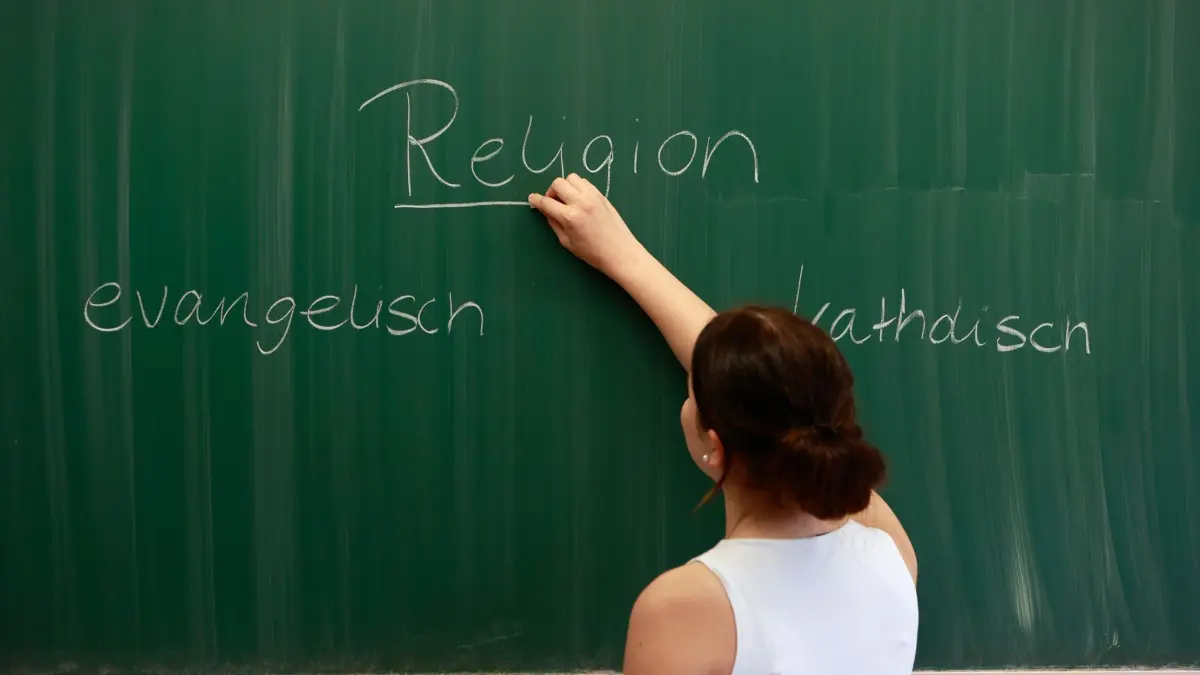 Religion
evangelisch
katholisch